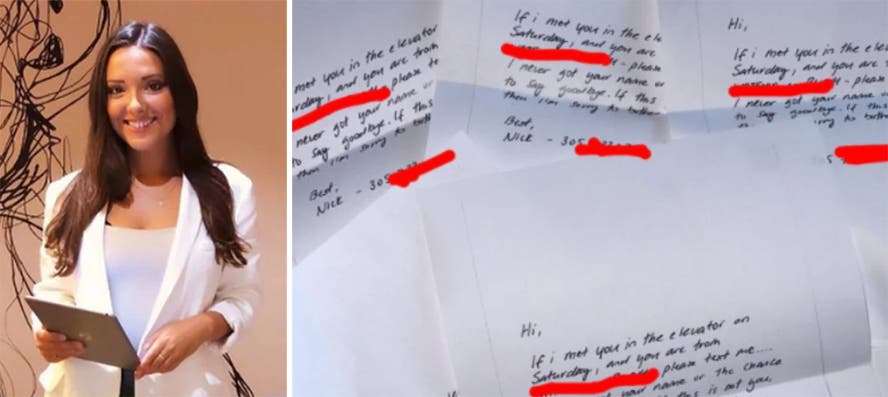 met you in the elevator
and you are from
please te
never got your name or
to say goodbye. If this
then i'm sorry to bother
Best,
Nick - 305
If i met you in the ele
Saturday, and you are
- please
I never got your name or
to say goodbye. If this
then i'm sorry to bother
Best,
Nick - 305
Hi,
If i met you in the ele
Saturday, and you are
- please
I never got your name
to say goodbye. If this
to both
5
Hi,
If i met you in the elevator on
Saturday, and you are from
please text me....
your name or the chance
this is not you,